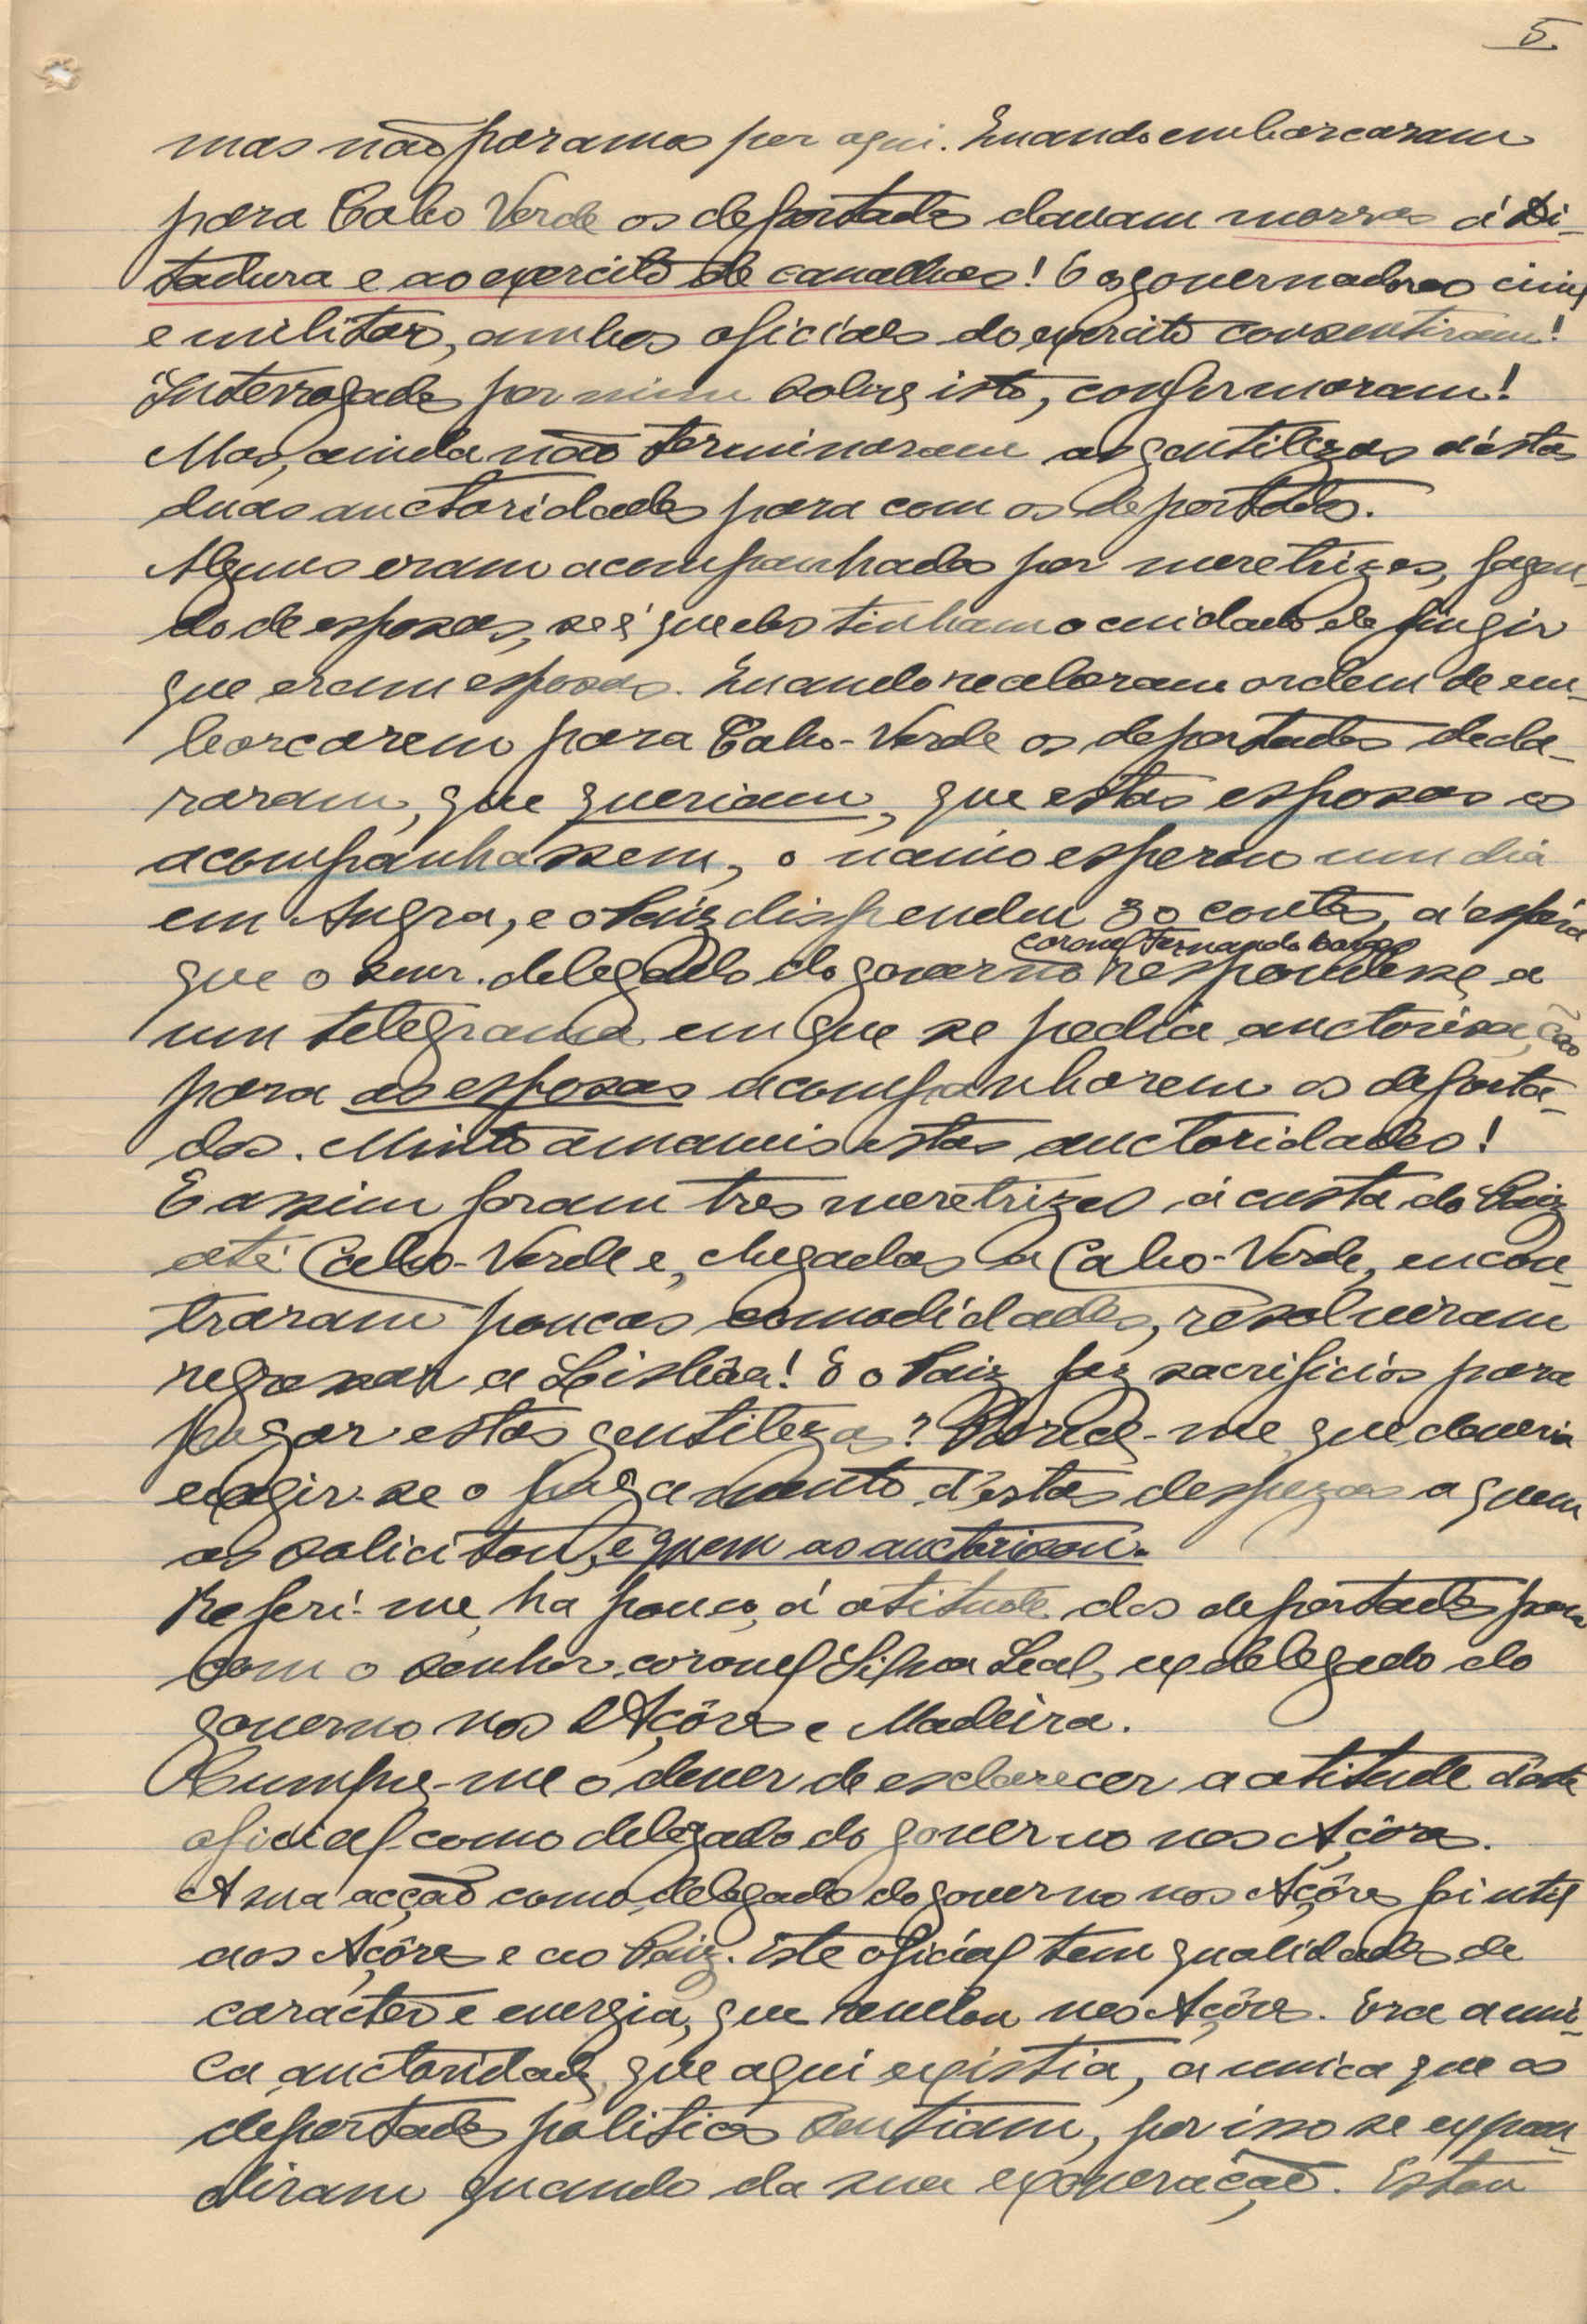 5
mas não paramos por aqui. Quando embarcaram
para Cabo Verde os deportados davam morras á Di-
tadura e ao exercito de canalhas! E os governadores civil
e militar, ambos oficiaes do exercito consentiram!
Interrogados por mim sobre isto, confirmaram!
Mas, ainda não terminaram as gentilezas d'éstas
duas auctoridades para com os deportados.
Alguns eram acompanhados por meretrizes, fazen-
do de esposas, se é que eles tinham o cuidado de fingir
que eram esposas. Quando receberam ordem de em-
barcarem para Cabo-Verde os deportados decla-
raram, que queriam, que estas esposas os
acompanhassem, o navio esperou um dia
em Angra, e o Paiz dispendeu 30 contos, á espéra
coronel Fernando Borges
que o snr. delegado do governo respondesse a
um telegrama em que se pedia auctorisação
para as esposas acompanharem os deporta-
dos. Muito amaveis estas auctoridades!
E assim foram tres meretrizes á custa do Paiz
até Cabo-Verde e, chegadas a Cabo-Verde, encon-
traram poucas comodidades, resolveram
regressar a Lisbôa! E o Paiz faz sacrificios para
pagar estas gentilezas? Parece-me, que deveria
exigir-se o pagamento d'estas despezas a quem
as solicitou, e quem as auctorisou.
Referi-me, ha pouco, á atitude dos deportados para
com o senhor coronel Silva Leal, ex delegado do
governo nos Açôres e Madeira.
Cumpre-me o dever de esclarecer a atitude d'este
oficial como delegado do governo nos Açôres.
A sua acção como delegado do governo nos Açôres foi util
aos Açôres e ao Paiz. Este oficial tem qualidades de
caracter e energia, que revelou nos Açôres. Era a uni-
ca auctoridade, que aqui existia, a unica que os
deportados politicos sentiam, por isso se expan-
diram quando da sua exoneração. Estou